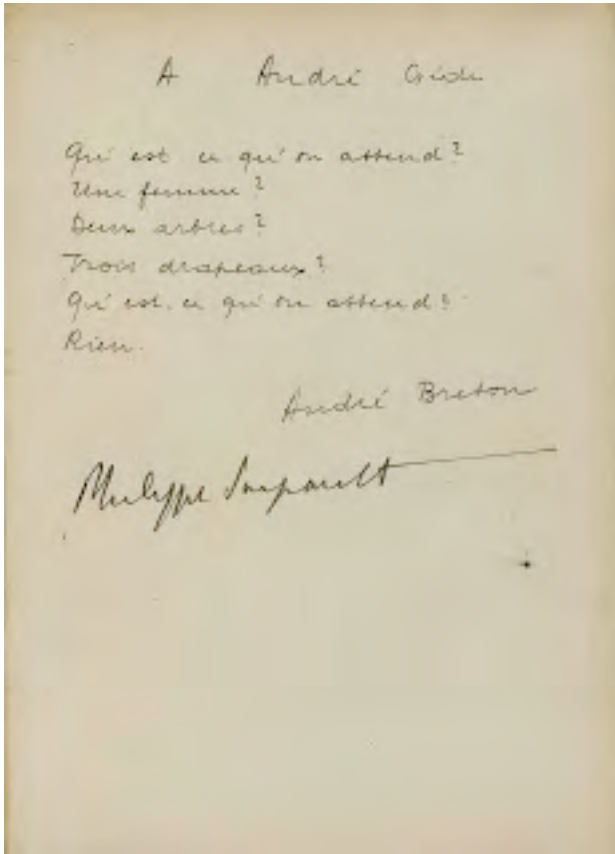 A André Gide
Qu'est ce qu'on attend?
Une femme?
Deux arbres?
Trois drapeaux?
Qu'est-ce qu'on attend?
Rien.
André Breton
Philippe Soupault